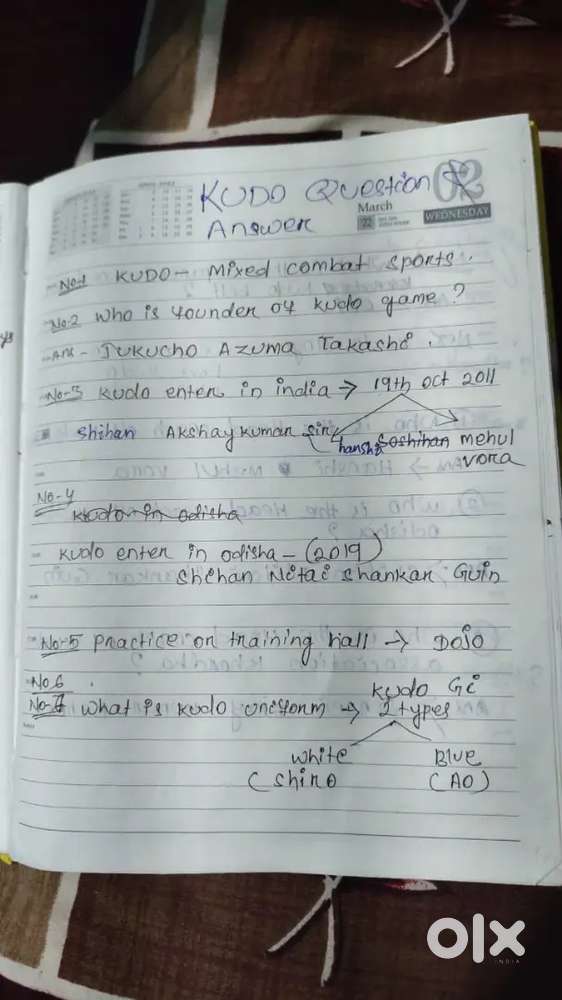 KUDO Question &
Answer
02
March
22
WEDNESDAY
No.1 KUDO - Mixed combat sports.
No.2 Who is founder of kudo game?
Ans - Jukucho Azuma Takashi.
No-3 kudo enter in india → 19th oct 2011
Shihan Akshay kumar sir
hanshi Soshihan mehul
vora
No-4
kudo in odisha
kudo enter in odisha - (2019)
Shihan Nitai shankar Guin
No-5 practice or training hall → DOJO
No.6
kudo Gi
No-7 what is kudo uniform → 2 types
white Blue
(Shiro (AO)
olx
INDIA